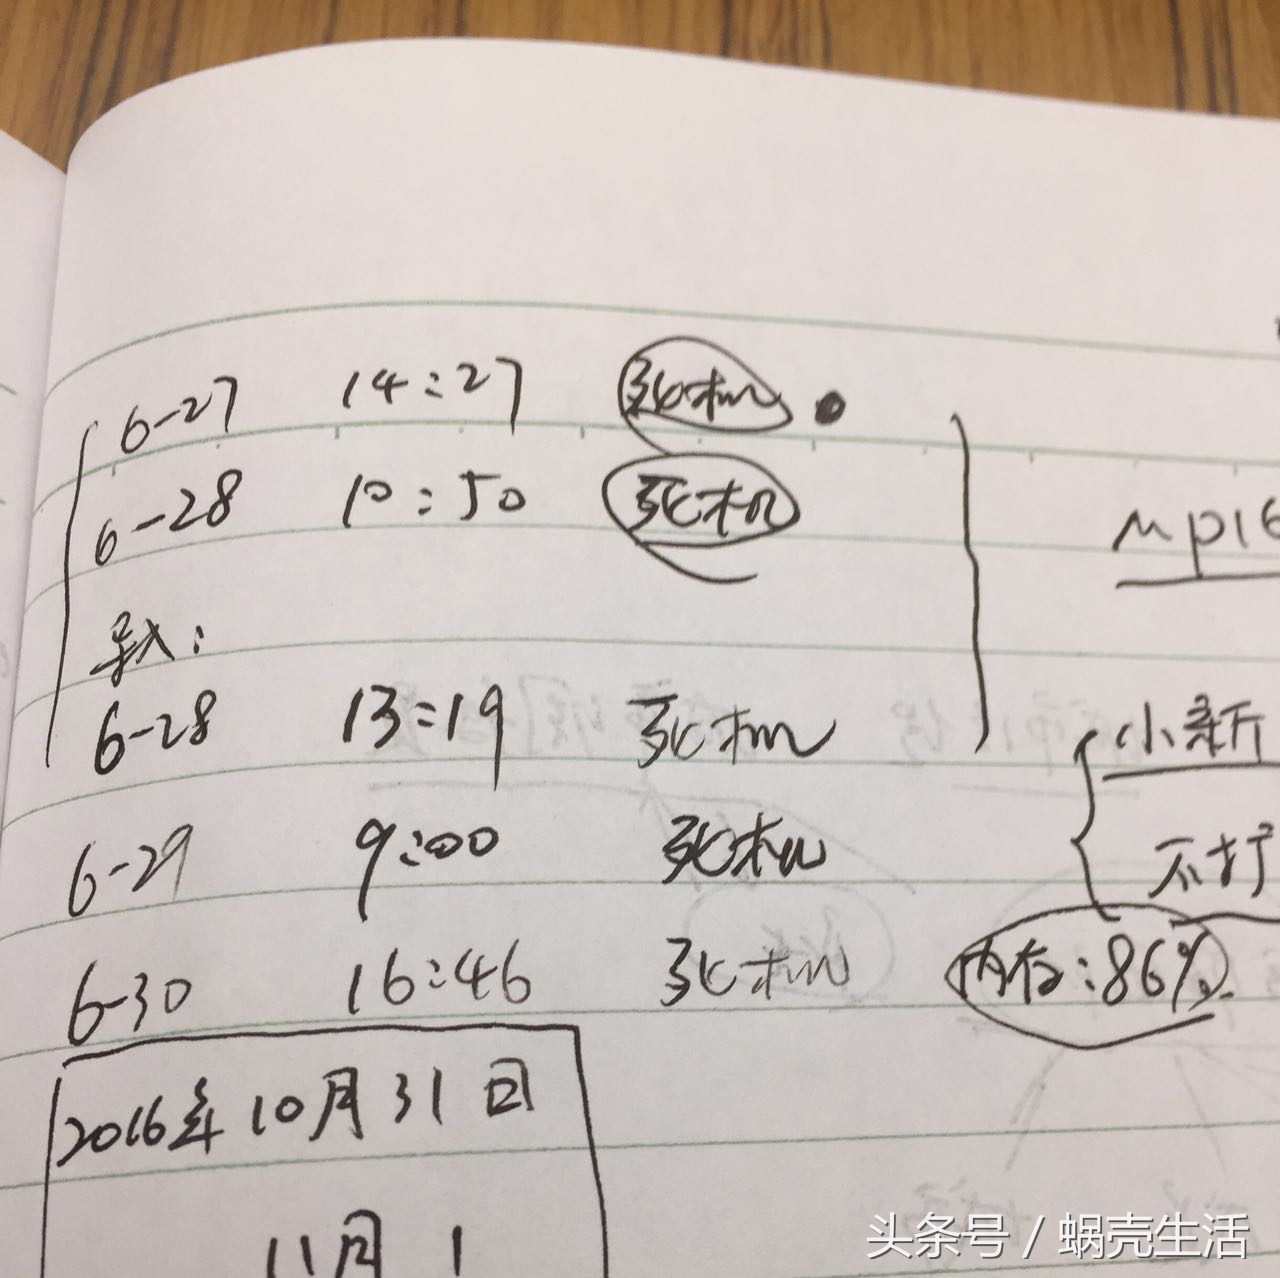 6-27 14:27 死机
6-28 10:50 死机
mp16
导入:
6-28 13:19 死机
小新
6-29 9:00 死机
不打
6-30 16:46 死机 内存:86%
2016年10月31日
11月1
头条号 / 蜗壳生活